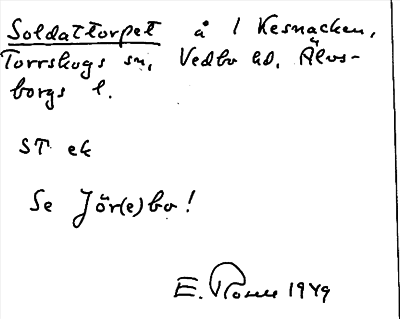 Soldattorpet å 1 Kesnacken,
Torrskogs sn, Vedbo hd, Älvs-
borgs l.
ST ek
Se Jör(e)bo!
E. 1949